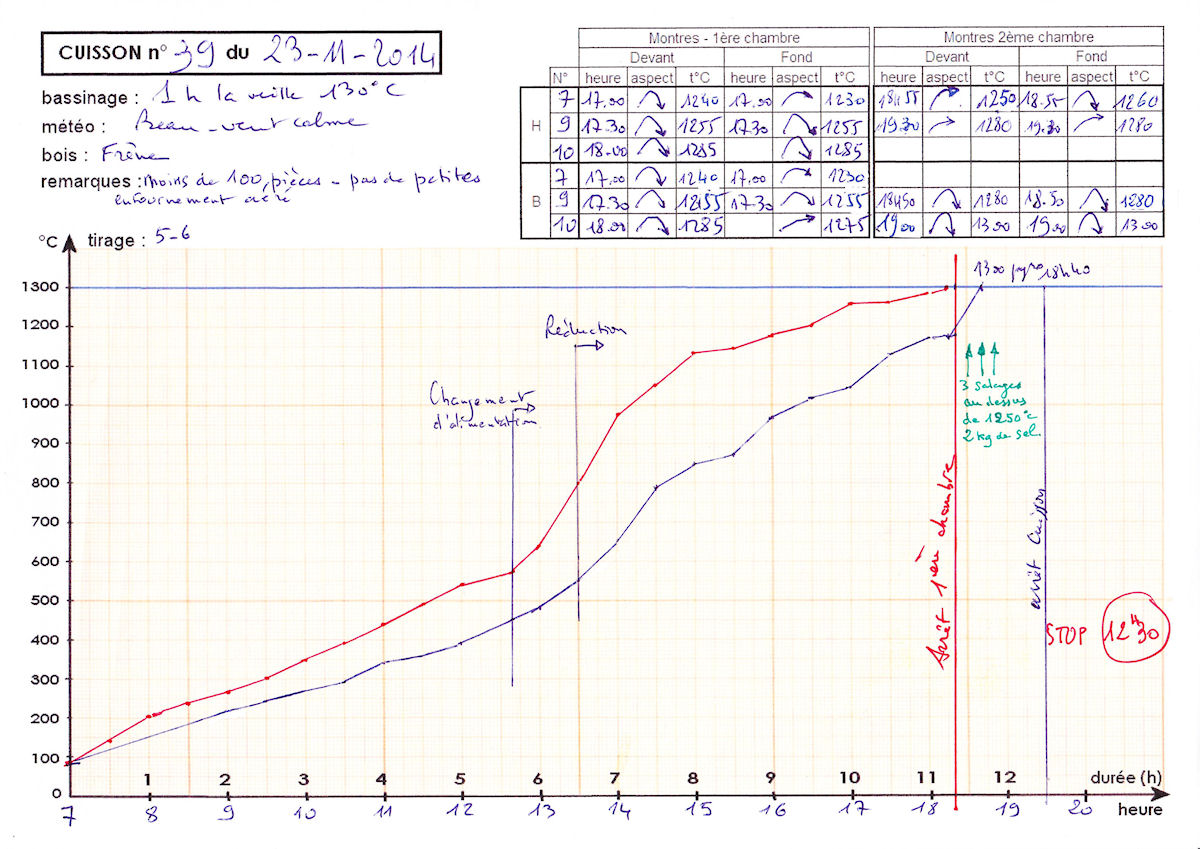 CUISSON n° 39 du 23-11-2014
bassinage : 1 h la veille 130°C
météo : Beau - vent calme
bois : Frêne
remarques : moins de 100 pièces - pas de petites
enfournement aéré
tirage : 5-6
Montres - 1ère chambre Montres 2ème chambre
Devant Fond Devant Fond
N° heure aspect t°C heure aspect t°C heure aspect t°C heure aspect t°C
H
7 17.00 1240 17.00 1230 18h55 1250 18.55 1260
9 17.30 1255 17.30 1255 19.30 1280 19.30 1280
10 18.00 1285 1285
B
7 17.00 1240 17.00 1230
9 17.30 1255 17.30 1255 18h50 1280 18.50 1280
10 18.00 1285 1275 19.00 1300 19.00 1300
°C
1300 pyro 18h40
1300
1200
1100
1000
900
800
700
600
500
400
300
200
100
0
Réduction
Changement
d'alimentation
3 salages
au dessus
de 1250°C
2 kg de sel
Arrêt 1ère chambre
arrêt Cuisson
STOP 12h30
1 2 3 4 5 6 7 8 9 10 11 12 durée (h)
7 8 9 10 11 12 13 14 15 16 17 18 19 20 heure